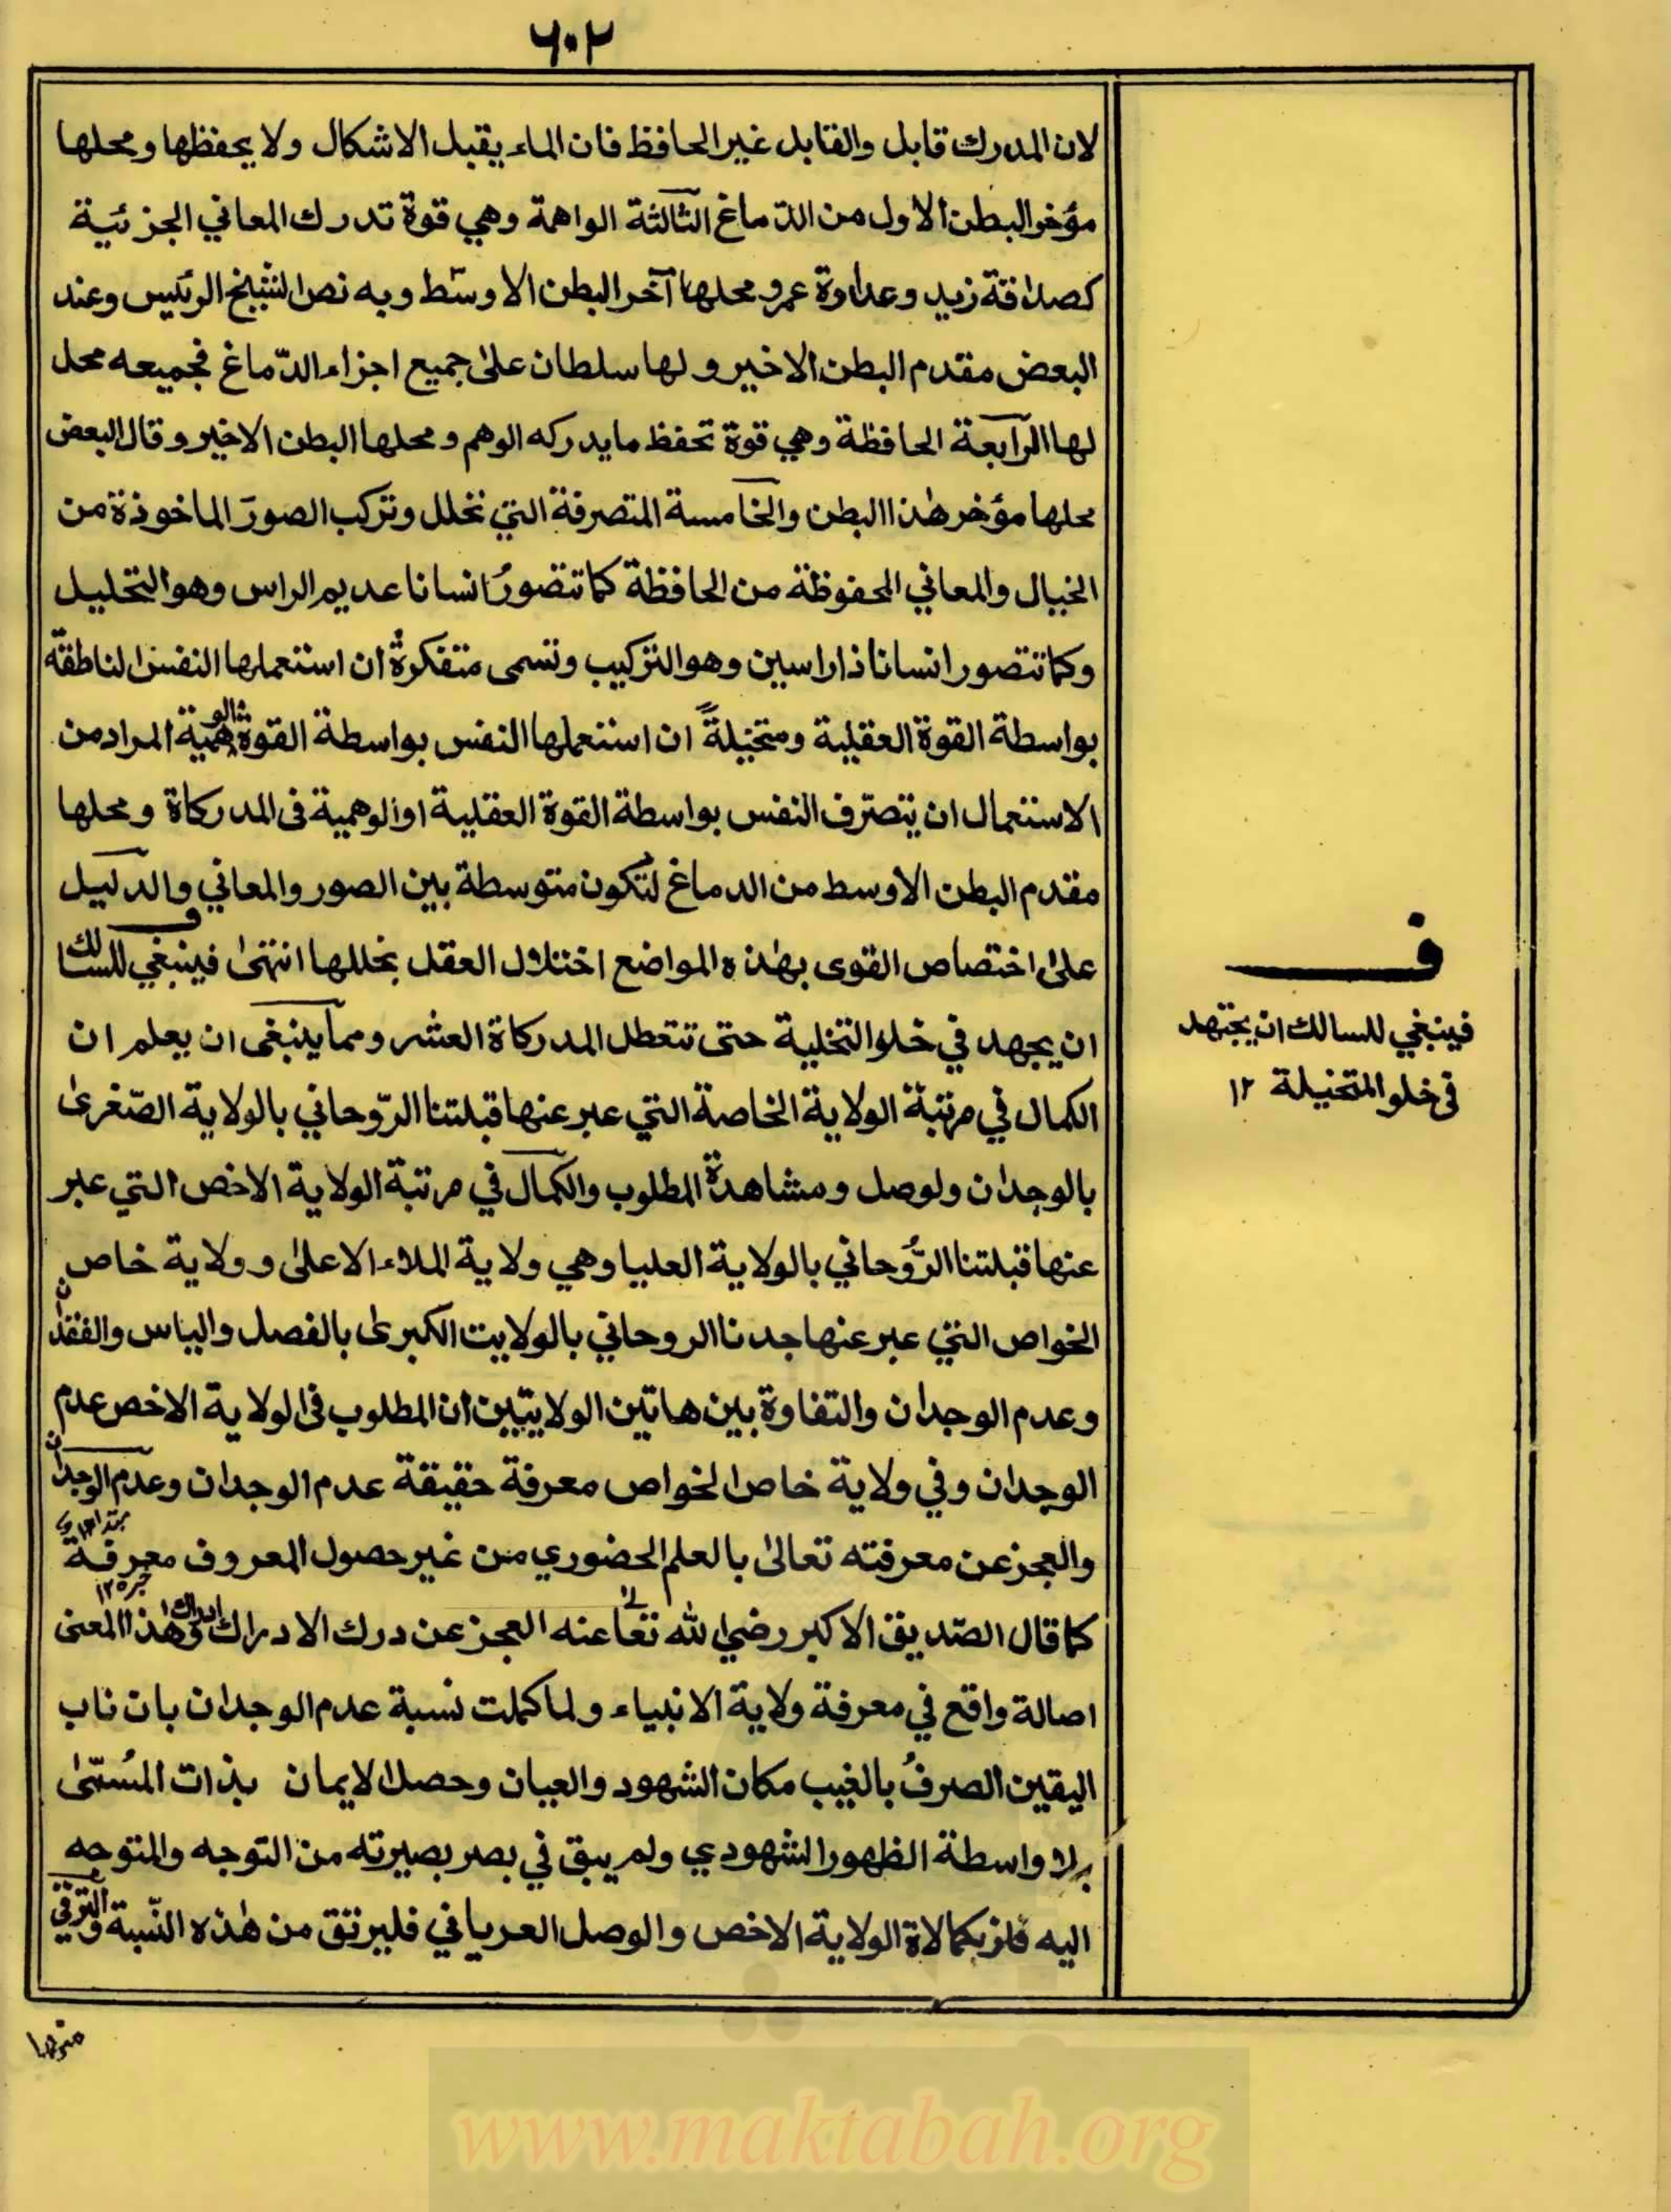 ٦٠٢
لان المدرك قابل والقابل غير الحافظ فان الماء يقبل الاشكال ولا يحفظها ومحلها
مؤخر البطن الاول من الدماغ الثالثة الواهمة وهي قوة تدرك المعاني الجزئية
كصداقة زيد وعداوة عمرو محلها آخر البطن الاوسط وبه نص الشيخ الرئيس وعند
البعض مقدم البطن الاخير ولها سلطان على جميع اجزاء الدّماغ فجميعه محل
لها الرابعة الحافظة وهي قوة تحفظ ما يدركه الوهم ومحلها البطن الاخير وقال البعض
محلها مؤخر هٰذا البطن والخامسة المتصرفة التي تحلل وتركب الصور الماخوذة من
الخيال والمعاني المحفوظة من الحافظة كما تتصور انسانا عديم الراس وهو التحليل
وكما تتصور انسانا ذا راسين وهو التركيب وتسمى متفكرة ان استعملها النفس الناطقة
بواسطة القوة العقلية ومتخيلةً ان استعملها النفس بواسطة القوة الوهمية المراد من
الاستعمال ان يتصرّف النفس بواسطة القوة العقلية او الوهمية فى المدركاة ومحلها
مقدم البطن الاوسط من الدماغ لتكون متوسطة بين الصور والمعاني والدليل
على اختصاص القوى بهٰذه المواضع اختلال العقل بخللها انتهىٰ فينبغي للسالك
ان يجهد في خلو التخلية حتى تتعطل المدركاة العشر ومما ينبغى ان يعلم ان
الكمال في مرتبة الولاية الخاصة التي عبر عنها قبلتنا الرّوحاني بالولاية الصّغرىٰ
بالوجدان ولوصل ومشاهدة المطلوب والكمال في مرتبة الولاية الاخص التي عبر
عنها قبلتنا الرُّوحاني بالولاية العليا وهي ولاية الملاء الاعلىٰ وولاية خاص
الخواص التي عبر عنها جدنا الروحاني بالولايت الكبرىٰ بالفصل والياس والفقدان
وعدم الوجدان والتفاوة بين هاتين الولايتين ان المطلوب فى الولاية الاخص عدم
الوجدان وفي ولاية خاص الخواص معرفة حقيقة عدم الوجدان وعدم الوجدان
والعجز عن معرفته تعالىٰ بالعلم الحضوري من غير حصول المعروف معرفة
كما قال الصّديق الاكبر رضي الله تعالى عنه العجز عن درك الادراك ادراك وهٰذا المعنى
اصالة واقع في معرفة ولاية الانبياء ولما كملت نسبة عدم الوجدان بان ناب
اليقين الصرفُ بالغيب مكان الشهود والعيان وحصل الايمان بذات المُسمّىٰ
بلا واسطة الظهور الشهودي ولم يبق في بصر بصيرته من التوجه والمتوجه
اليه فاز بكمالاة الولاية الاخص والوصل العرياني فليرتق من هٰذه النّسبة والترقي
منها
ف
فينبغي للسالك ان يجتهد
فى خلو المتخيلة ١٢
www.maktabah.org